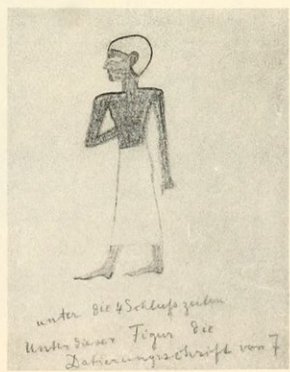 unter die 4 Schlußzeilen
Unter dieser Figur die
Datierungsschrift von 7